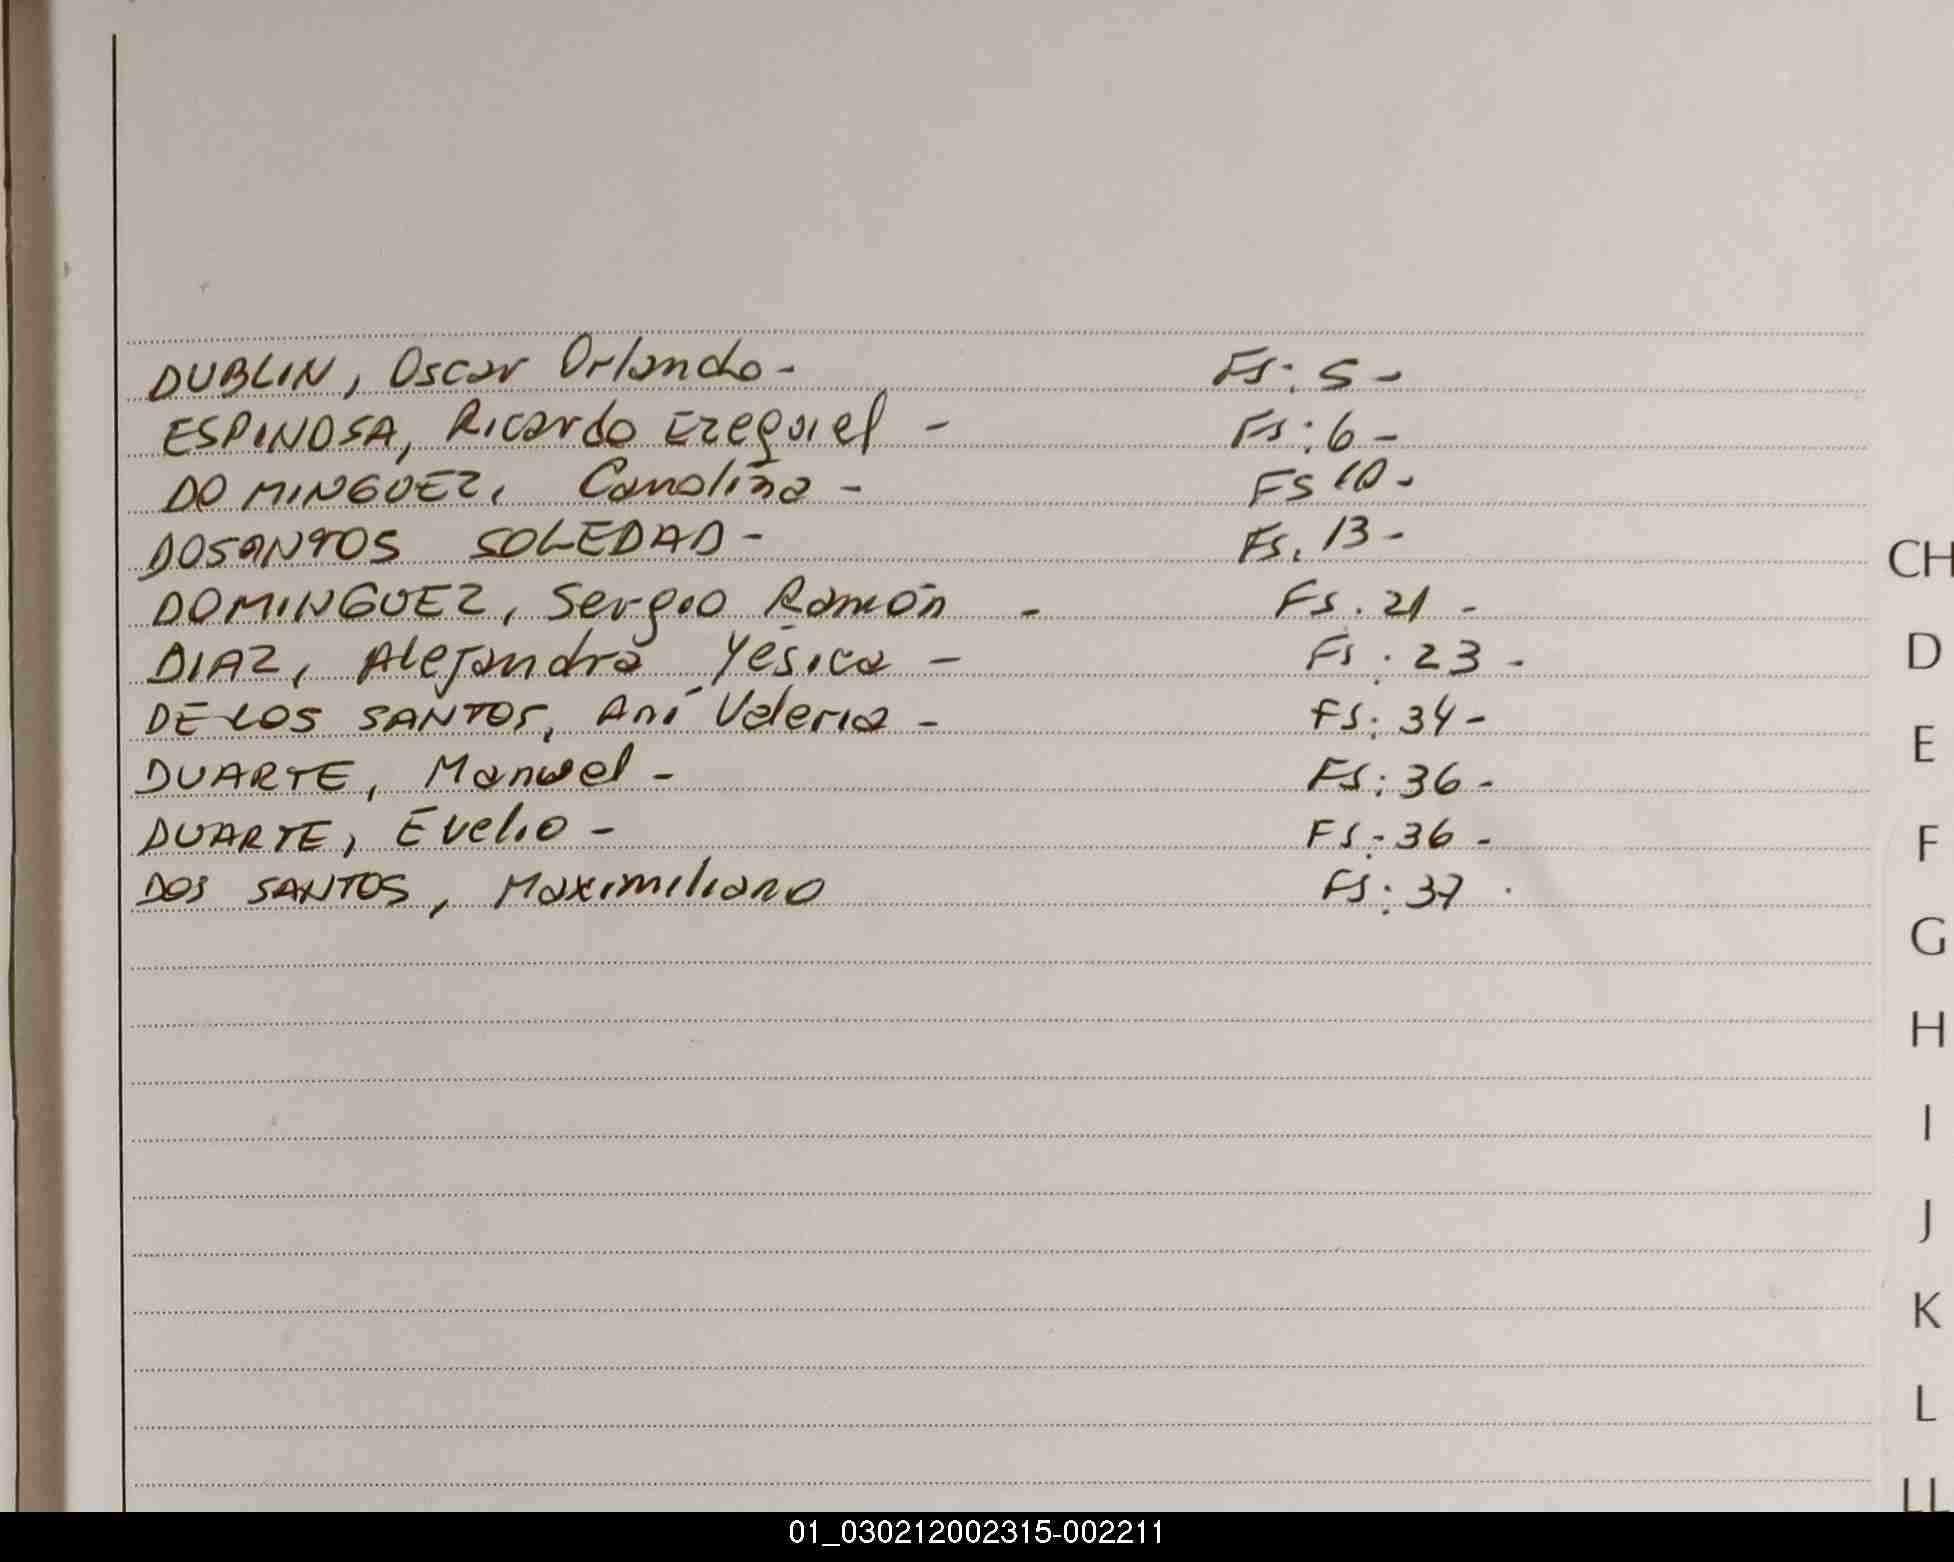 DUBLIN, Oscar Orlando- Fs: 5-
ESPINOSA, Ricardo Ezequiel - Fs: 6-
DOMINGUEZ, Carolina - FS 10-
DOSANTOS SOLEDAD- Fs. 13-
DOMINGUEZ, Sergio Ramón - Fs. 21 -
DIAZ, Alejandra Yésica - Fs. 23 -
DE LOS SANTOS, Ani Valeria - FS: 34-
DUARTE, Manuel - FS: 36-
DUARTE, Evelio - FS: 36 -
DOS SANTOS, Maximiliano FS: 37
CH
D
E
F
G
H
I
J
K
L
LL
01_030212002315-002211